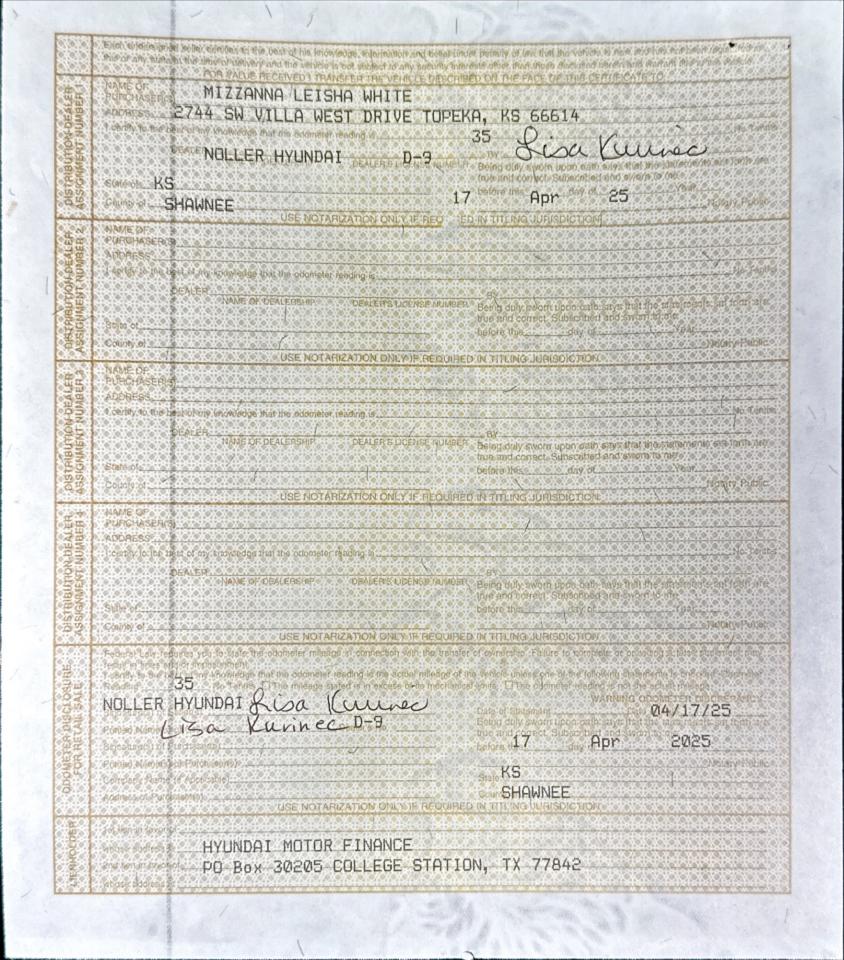 Each undersigned seller certifies to the best of his knowledge, information and belief under penalty of law that the vehicle
FOR VALUE RECEIVED I TRANSFER THE VEHICLE DESCRIBED ON THE FACE OF THIS CERTIFICATE TO:
DISTRIBUTION-DEALER ASSIGNMENT NUMBER 1
NAME OF PURCHASER(S) MIZZANNA LEISHA WHITE
ADDRESS 2744 SW VILLA WEST DRIVE TOPEKA, KS 66614
I certify to the best of my knowledge that the odometer reading is 35
DEALER NOLLER HYUNDAI D-9 BY Lisa Kurinec
DEALER'S LICENSE NUMBER Being duly sworn upon oath says that the statements set forth are
true and correct. Subscribed and sworn to me
State of KS before this 17 day of Apr 25 Year
County of SHAWNEE Notary Public
USE NOTARIZATION ONLY IF REQ ED IN TITLING JURISDICTION
DISTRIBUTION-DEALER ASSIGNMENT NUMBER 2
NAME OF PURCHASER(S)
ADDRESS
I certify to the best of my knowledge that the odometer reading is No Tenths
DEALER BY
NAME OF DEALERSHIP DEALER'S LICENSE NUMBER Being duly sworn upon oath says that the statements set forth are
true and correct. Subscribed and sworn to me
State of before this day of Year
County of Notary Public
USE NOTARIZATION ONLY IF REQUIRED IN TITLING JURISDICTION
DISTRIBUTION-DEALER ASSIGNMENT NUMBER 3
NAME OF PURCHASER(S)
ADDRESS
I certify to the best of my knowledge that the odometer reading is No Tenths
DEALER BY
NAME OF DEALERSHIP DEALER'S LICENSE NUMBER Being duly sworn upon oath says that the statements set forth are
true and correct. Subscribed and sworn to me
State of before this day of Year
County of Notary Public
USE NOTARIZATION ONLY IF REQUIRED IN TITLING JURISDICTION
DISTRIBUTION-DEALER ASSIGNMENT NUMBER 4
NAME OF PURCHASER(S)
ADDRESS
I certify to the best of my knowledge that the odometer reading is No Tenths
DEALER BY
NAME OF DEALERSHIP DEALER'S LICENSE NUMBER Being duly sworn upon oath says that the statements set forth are
true and correct. Subscribed and sworn to me
State of before this day of Year
County of Notary Public
USE NOTARIZATION ONLY IF REQUIRED IN TITLING JURISDICTION
ODOMETER DISCLOSURE FOR RETAIL SALE
Federal Law requires you to state the odometer mileage in connection with the transfer of ownership. Failure to complete or providing a false statement may
result in fines and/or imprisonment.
I certify to the best of my knowledge that the odometer reading is the actual mileage of the vehicle unless one of the following statements is checked. Odometer
35 The mileage stated is in excess of its mechanical limits. The odometer reading is not the actual mileage.
WARNING ODOMETER DISCREPANCY
NOLLER HYUNDAI Lisa Kurinec Date of Statement 04/17/25
Lisa Kurinec D-9 Being duly sworn upon oath says that the statements set forth are
true and correct. Subscribed and sworn to me
Signature(s) of Purchaser(s) before 17 day Apr 2025
Printed Name(s) of Purchaser(s) Notary Public
Company Name (If Applicable) State KS
Address of Purchaser(s) SHAWNEE
USE NOTARIZATION ONLY IF REQUIRED IN TITLING JURISDICTION
LIENHOLDER
1st lien in favor of HYUNDAI MOTOR FINANCE
whose address is PO Box 30205 COLLEGE STATION, TX 77842
2nd lien in favor of
whose address is